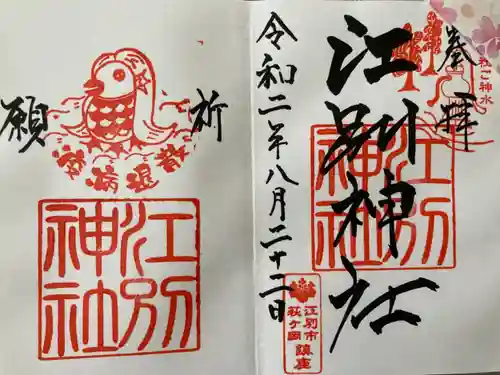 奉拝
萩乃御神水
江別神社
江別神社
令和二年八月二十二日
江別市
萩ケ岡
鎮座
祈
願
疫病退散
江別神社